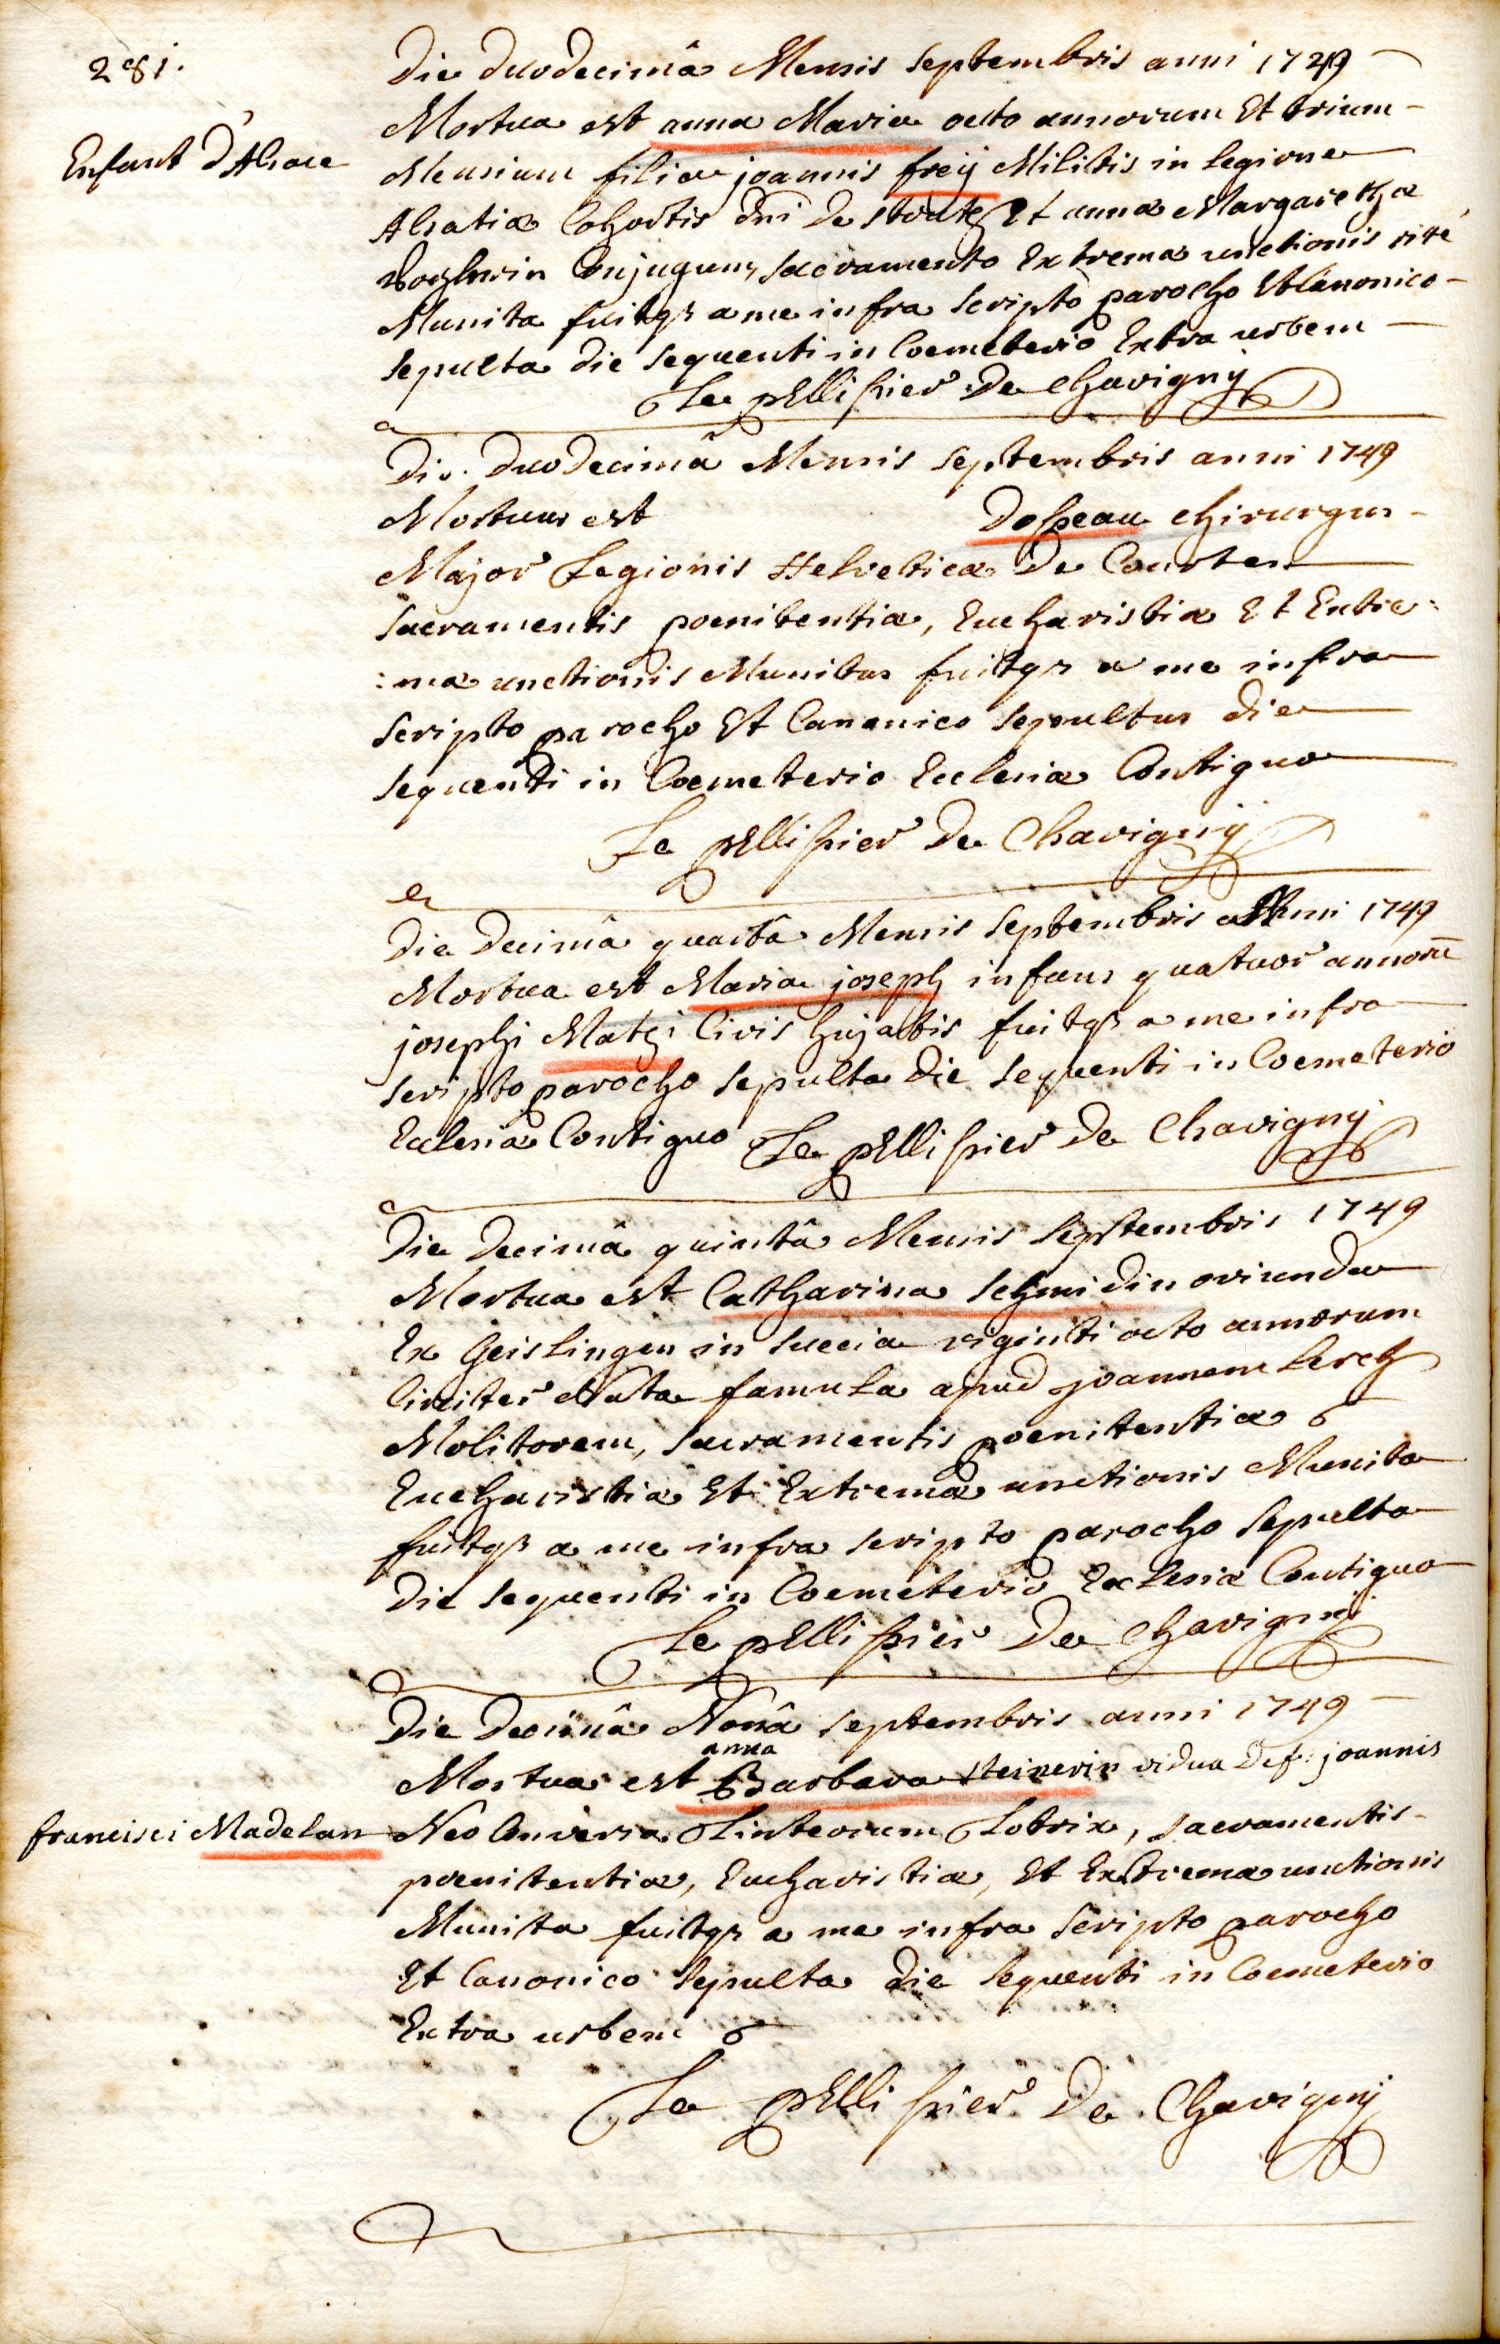 281.
Die duodecimâ Mensis septembris anni 1749
Enfant d'Alsace
Mortua est anna Maria octo annorum Et trium
Mensium filia joannis freÿ Militis in legione
Alsatiæ Cohortis dni de Et annæ Margarethæ
Conjugum, sacramento Extremæ unctionis rité
Munita fuitqz a me infra scripto parocho Et Canonico
sepulta die sequenti in Coemeterio Extra urbem
Le pEllissier De Chavignÿ
Die duodecimâ Mensis septembris anni 1749
Mortuus est Dosseau chirurgus
Major Legionis Helveticæ De Courten
sacramentis poenitentiæ, Eucharistiæ Et Extre:
:mæ unctionis Munitus fuitqz a me infra
scripto parocho Et Canonico sepultus die
sequenti in Coemeterio Ecclesiæ Contiguo
Le pElli ssier De Chavignÿ
Die decimâ quartâ Mensis septembris anni 1749
Mortua est Maria joseph infans quatuor annorū
josephi Matzi Civis hujatis fuitqz a me infra
scripto parocho sepulta die sequenti in Coemeterio
Ecclesiæ Contiguo Le pElli ssier De Chavignÿ
Die decimâ quintâ Mensis Septembris 1749
Mortua est Catharina schmidin oriunda
Ex Geislingen in suecia viginti octo annorum
Circiter Nata famula apud joannem Lerch
Molitorem, sacramentis poenitentiæ
Eucharistiæ Et Extremæ unctionis Munita
fuitqz a me infra scripto parocho sepulta
die sequenti in Coemeterio Ecclesiæ Contiguo
Le pElli ssier De Chavignÿ
Die decimâ Nonâ septembris anni 1749
anna
Mortua est Barbara steinerin vidua def: joannis
francisci Madelan
Neo Conversa Linteorum Lotrix, sacramentis
poenitentiæ, Eucharistiæ, Et Extremæ unctionis
Munita fuitqz a me infra scripto parocho
Et Canonico sepulta die sequenti in Coemeterio
Extra urbem
Le pElli ssier De Chavignÿ